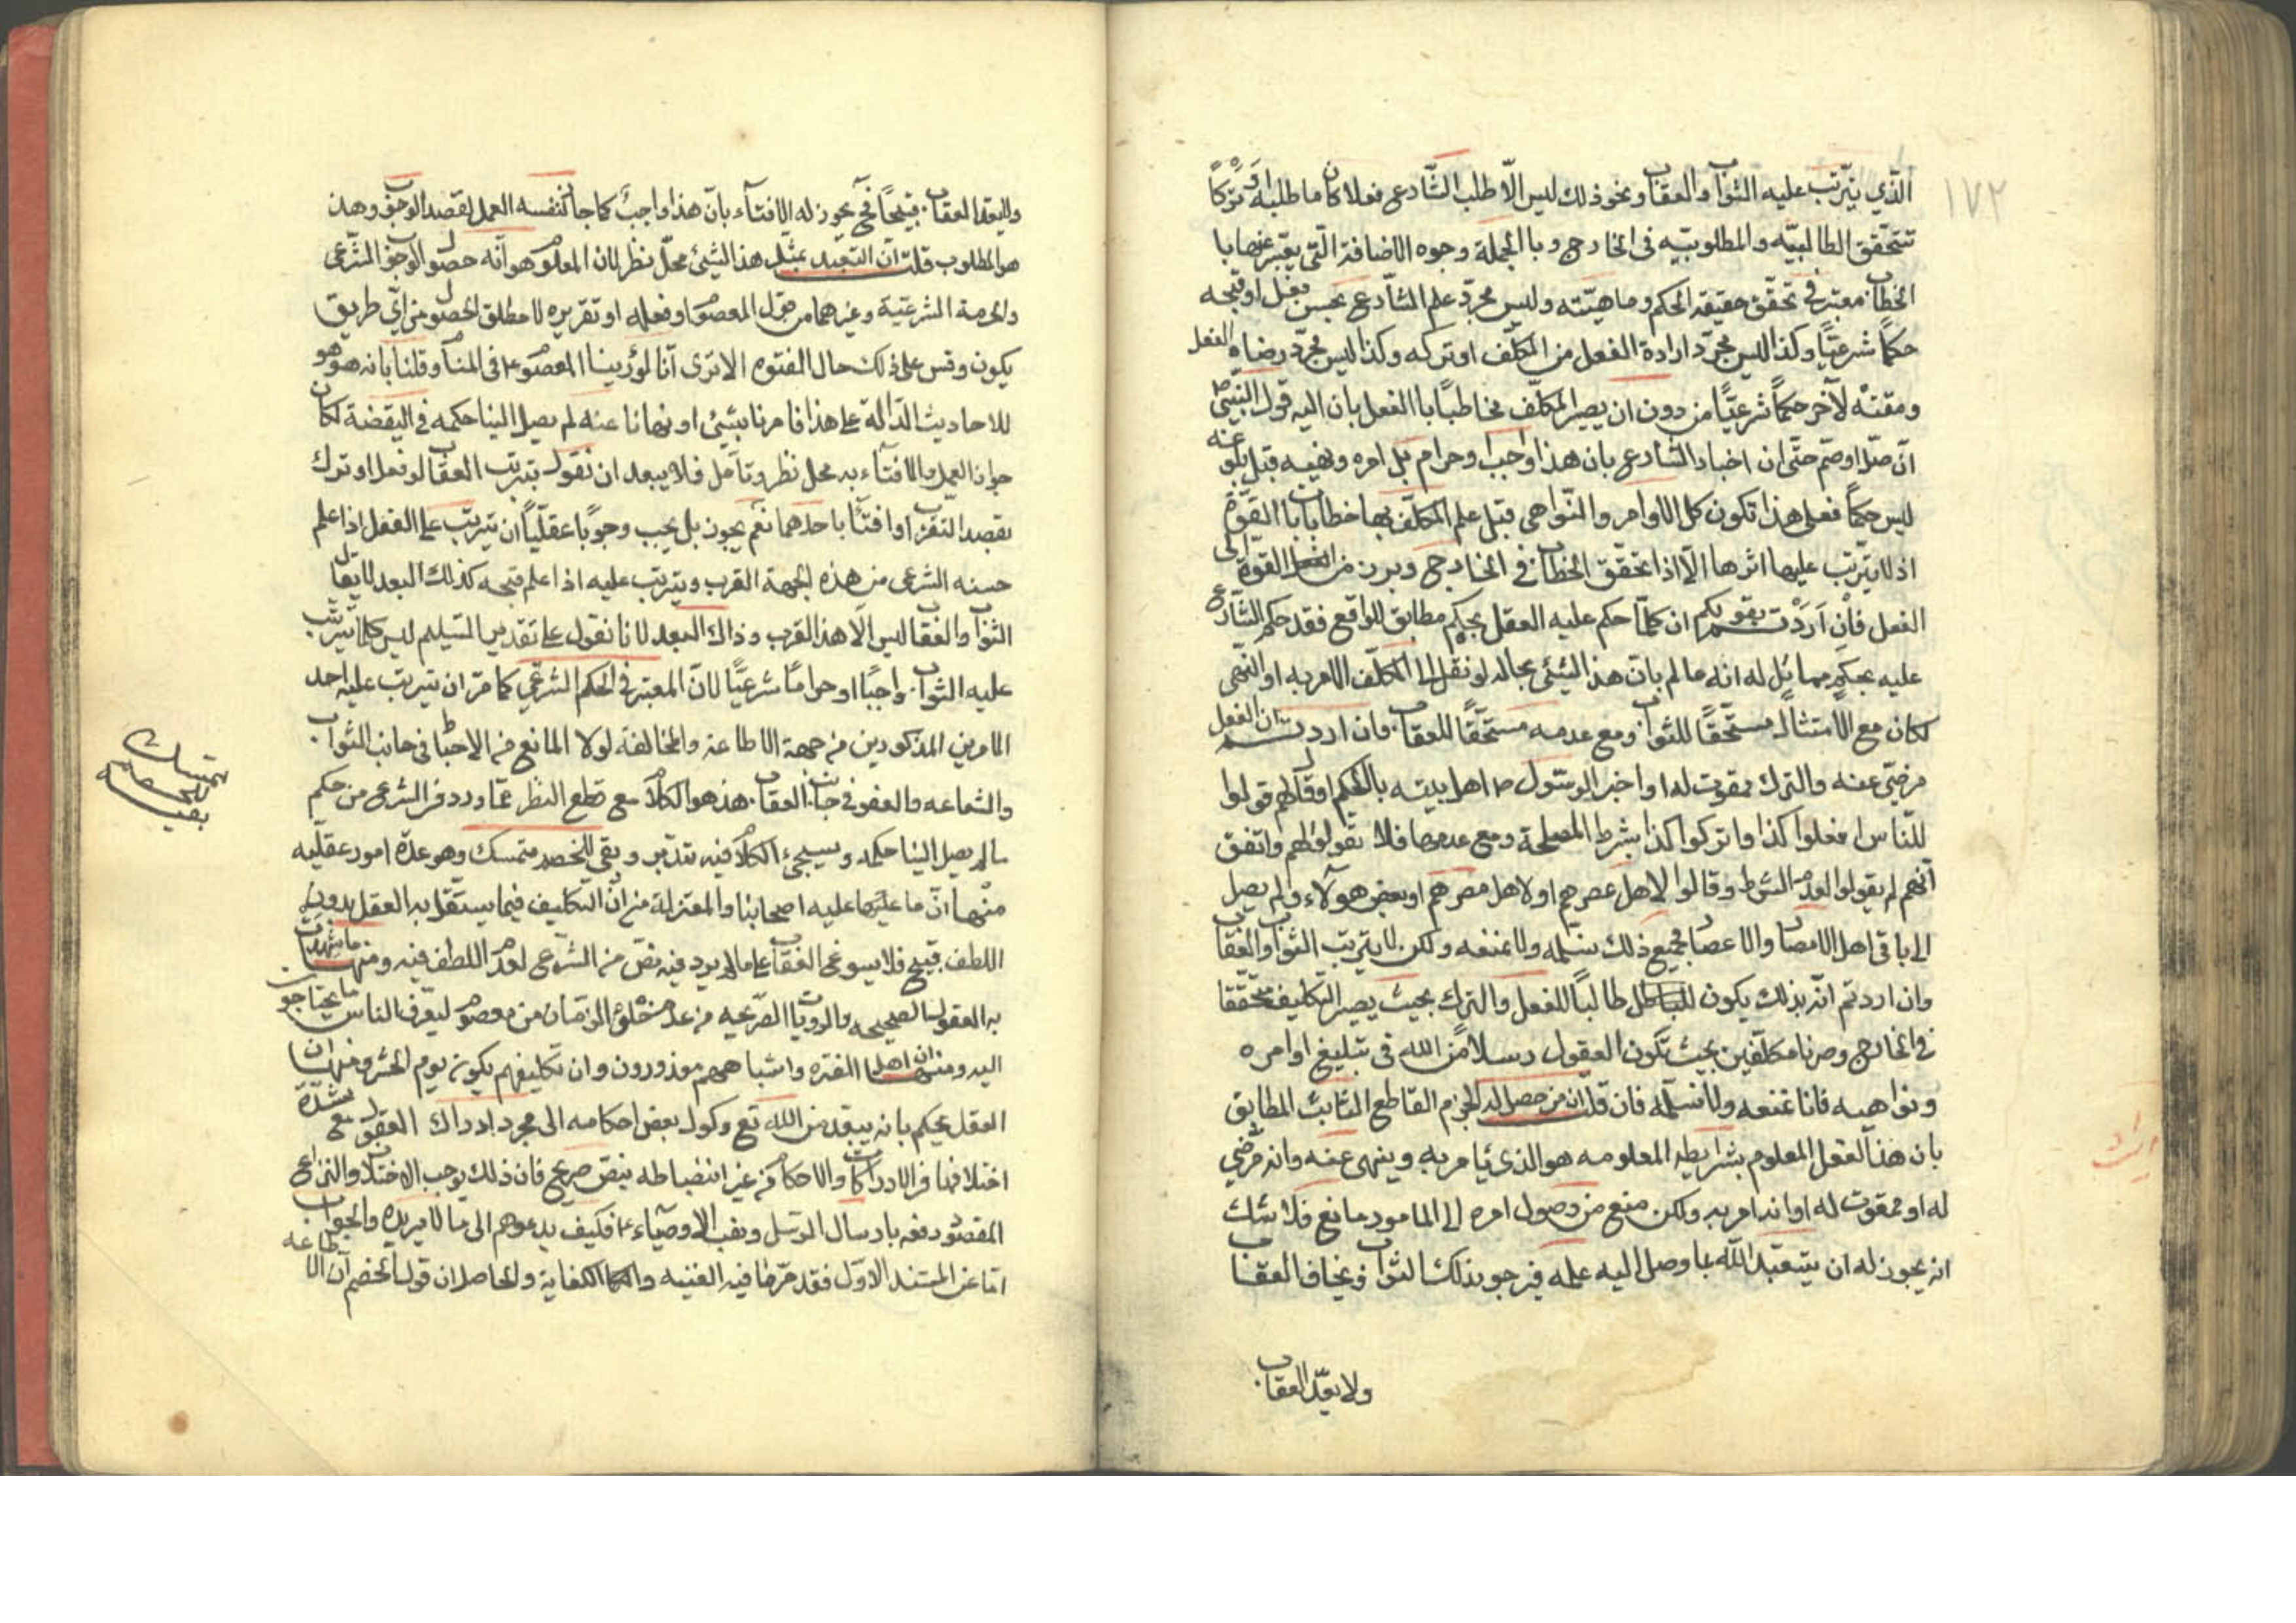 ١٧٢
الّذي يترتّب عليه الثواب والعقاب ونحو ذلك ليس الّا طلب الشّارع فعلا كان ما طلبه او تركًا
تتحقّق الطالبيّه والمطلوبيّه فى الخارج وبالجملة وجوه الاضافة الّتى يعبّر عنها با
الخطاب معتبر فى تحقّق حقيقة الحكم وماهيّته وليس مجرّد علم الشّارع بحسن فعل او قبحه
حكمًا شرعيًّا وكذا ليس مجرّد ارادة الفعل من المكلّف او تركه وكذا ليس مجرّد رضاه الفعل
ومقته لآخر حكمًا شرعيًّا من دون ان يصير المكلّف مخاطبًا با الفعل بان اليه قول النبىّ ص
انّ صلّ او صم حتّى ان اخبار الشارع بان هذا واجب او حرام بل امره ونهيه قبل بلوغه
ليس حكمًا فعلى هذا تكون كل الاوامر والنّواهى قبل علم المكلّف بها خطابات با القوّة
اذ لا يترتّب عليها اثرها الّا اذا تحقّق الخطاب فى الخارج وبرز من القوة الى
الفعل فان اردت بقولكم ان كلّما حكم عليه العقل بحكم مطابق للواقع فقد حكم الشّارع
عليه بحكم مماثل له انه ما لم بانّ هذا الشيئ بحاله لو نقل الى المكلّف الامر به او النّهى
لكان مع الامتثال مستحقًّا للثواب ومع عدمه مستحقًا للعقاب وان اردت ان الفعل
مرضىّ عنه والترك ممقوت له او اخبر الرسول ص اهل بيته بالحكم او قال لهم قولوا
للنّاس افعلوا كذا واتركوا كذا بشرط المصلحة ومع عدمها فلا تقولوا لهم واتفق
انّهم لم يقولوا لعدم الشرط وقالوا لاهل عصرهم او لاهل مصرهم او بعض هولآء ولم يصل
الى باقى اهل الامصار والاعصار فجميع ذلك نسلّمه ولا نمنعه ولكن لا يترتب الثواب والعقاب
وان اردتم انّه بذلك يكون طالبًا للفعل والترك بحيث يصير التكليف محقّقا
فى الخارج وصرنا مكلّفين بحيث تكون العقول رسلا من الله فى تبليغ اوامره
ونواهيه فانا نمنعه ولا نسلّمه فان قلت ان من حصل له الجزم القاطع الثابت المطابق
بان هذا الفعل المعلوم بشرايطه المعلومه هو الذى يأمر به وينهى عنه وانه مرضي
له او ممقوت له او انه امر به ولكن منع من وصول امره الى المامور مانع فلا شك
انه يجوز له ان يتعبّد الله بما وصل اليه علمه فيرجو بذلك الثواب ويخاف العقاب
ولا يعدّ العقاب
ايراد
ولا يعد العقاب قبيحًا فح يجوز له الافتآء بانّ هذا واجب كما جاز لنفسه العمل بقصد الوجوب وهذا
هو المطلوب قلت انّ التعبد بمثل هذا الشيئ محلّ نظر لان المعلوم هو انّه حصول الوجوب الشرعى
والحرمة الشرعيّة وغيرهما من قول المعصوم او فعله او تقريره لا مطلق الحصول من اىّ طريق
يكون وقس على ذلك حال الفتوه الا ترى انّا لو رئينا المعصوم ع فى المنام وقلنا بانه هو هو
للاحاديث الدّالة على هذا فامرنا بشيئ او نهانا عنه لم يصل الينا حكمه فى اليقضة لكان
جواز العمل والافتآء به محل نظر وتأمل فلا يبعد ان نقول بترتب العقاب لو فعل او ترك
بقصد التقرب او افتى باحدهما نعم يجوز بل يجب وجوبًا عقليًّا ان يترتب على الفعل اذا علم
حسنه الشرعى من هذه الجهة القرب ويترتب عليه اذا علم قبحه كذلك البعد لا يقال
الثواب والعقاب ليس الّا هذا القرب وذاك البعد لانا نقول على تقدير التسليم ليس كلما يترتب
عليه الثواب واجبًا او حرامًا شرعيًّا لانّ المعتبر فى الحكم الشرعي كما مرّ ان يترتب عليه احد
الامرين المذكورين من جهة الاطاعة والمخالفة لولا المانع من الاحباط فى جانب الثواب
والشفاعه والعفو فى جانب العقاب هذا هو الكلام مع قطع النظر عمّا ورد فى الشرعى من حكم
ما لم يصل الينا حكمه وسيجئ الكلام فيه تدبّر وبقى للخصم متمسك وهو عدّة امور عقليه
منها انّ ما عليه اصحابنا والمعتزلة من انّ التكليف فيما يستقل به العقل بدون
اللطف قبيح فلا يسوغ العقاب على ما لم يرد فيه نصّ من الشرعى لعدم اللطف فيه ومنها ما شهدت
به العقول الصحيحه والروايات الصّريحه من عدم خلوّ الزّمان من معصوم ليعرّف الناس ما يحتاجون
اليه ومنها ان اهل الفتره واشباههم معذورون وان تكليفهم يكون يوم الحشر ومنها ان
العقل يحكم بانه يبعد من الله تع وكول بعض احكامه الى مجرد ادراك العقول مع شدّة
اختلافها فى الادراكات والاحكام من غير انضباطه بنصّ صريح فان ذلك يوجب الاختلاف والنزاع
المقصود رفعه بارسال الرّسل ونصب الاوصيآء ع فكيف يدعوهم الى ما لا يريده والجواب
امّا عن المستند الاوّل فقد مرّ ما فيه الغنيه والكفاية والحاصل ان قول الخصم انّ الاطاعه
متمسك
للخصم
بقى